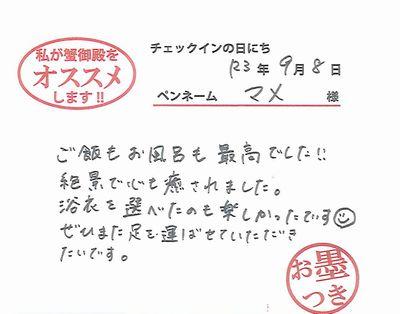 私が蟹御殿を
オススメ
します!!
チェックインの日にち
R3年9月8日
ペンネーム マメ 様
ご飯もお風呂も最高でした!!
絶景で心も癒されました。
浴衣を選べたのも楽しかったです☺
ぜひまた足を運ばせていただき
たいです。
お墨
つき